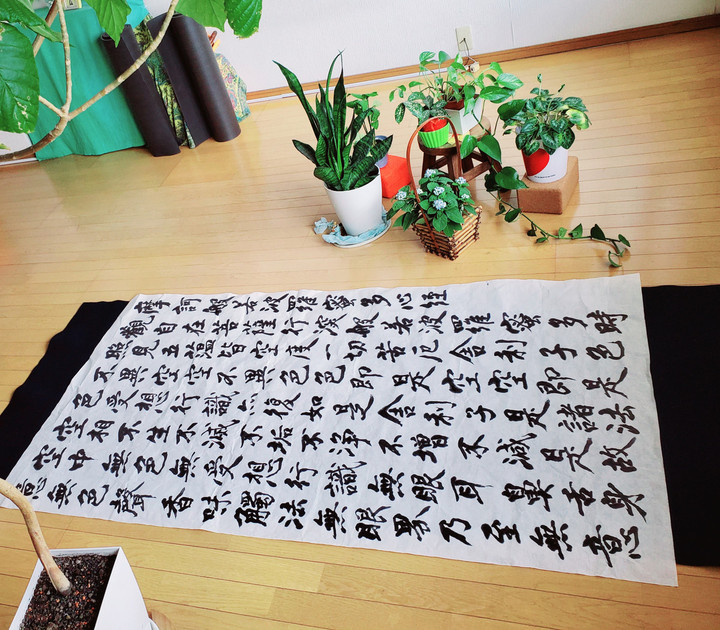 摩訶般若波羅蜜多心経
觀自在菩薩行深般若波羅蜜多時
照見五蘊皆空度一切苦厄舎利子色
不異空空不異色色即是空空即是
色受想行識亦復如是舎利子是諸法
空相不生不滅不垢不浄不増不減是故
空中無色無受想行識無眼耳鼻舌身
意無色聲香味觸法無眼界乃至無意